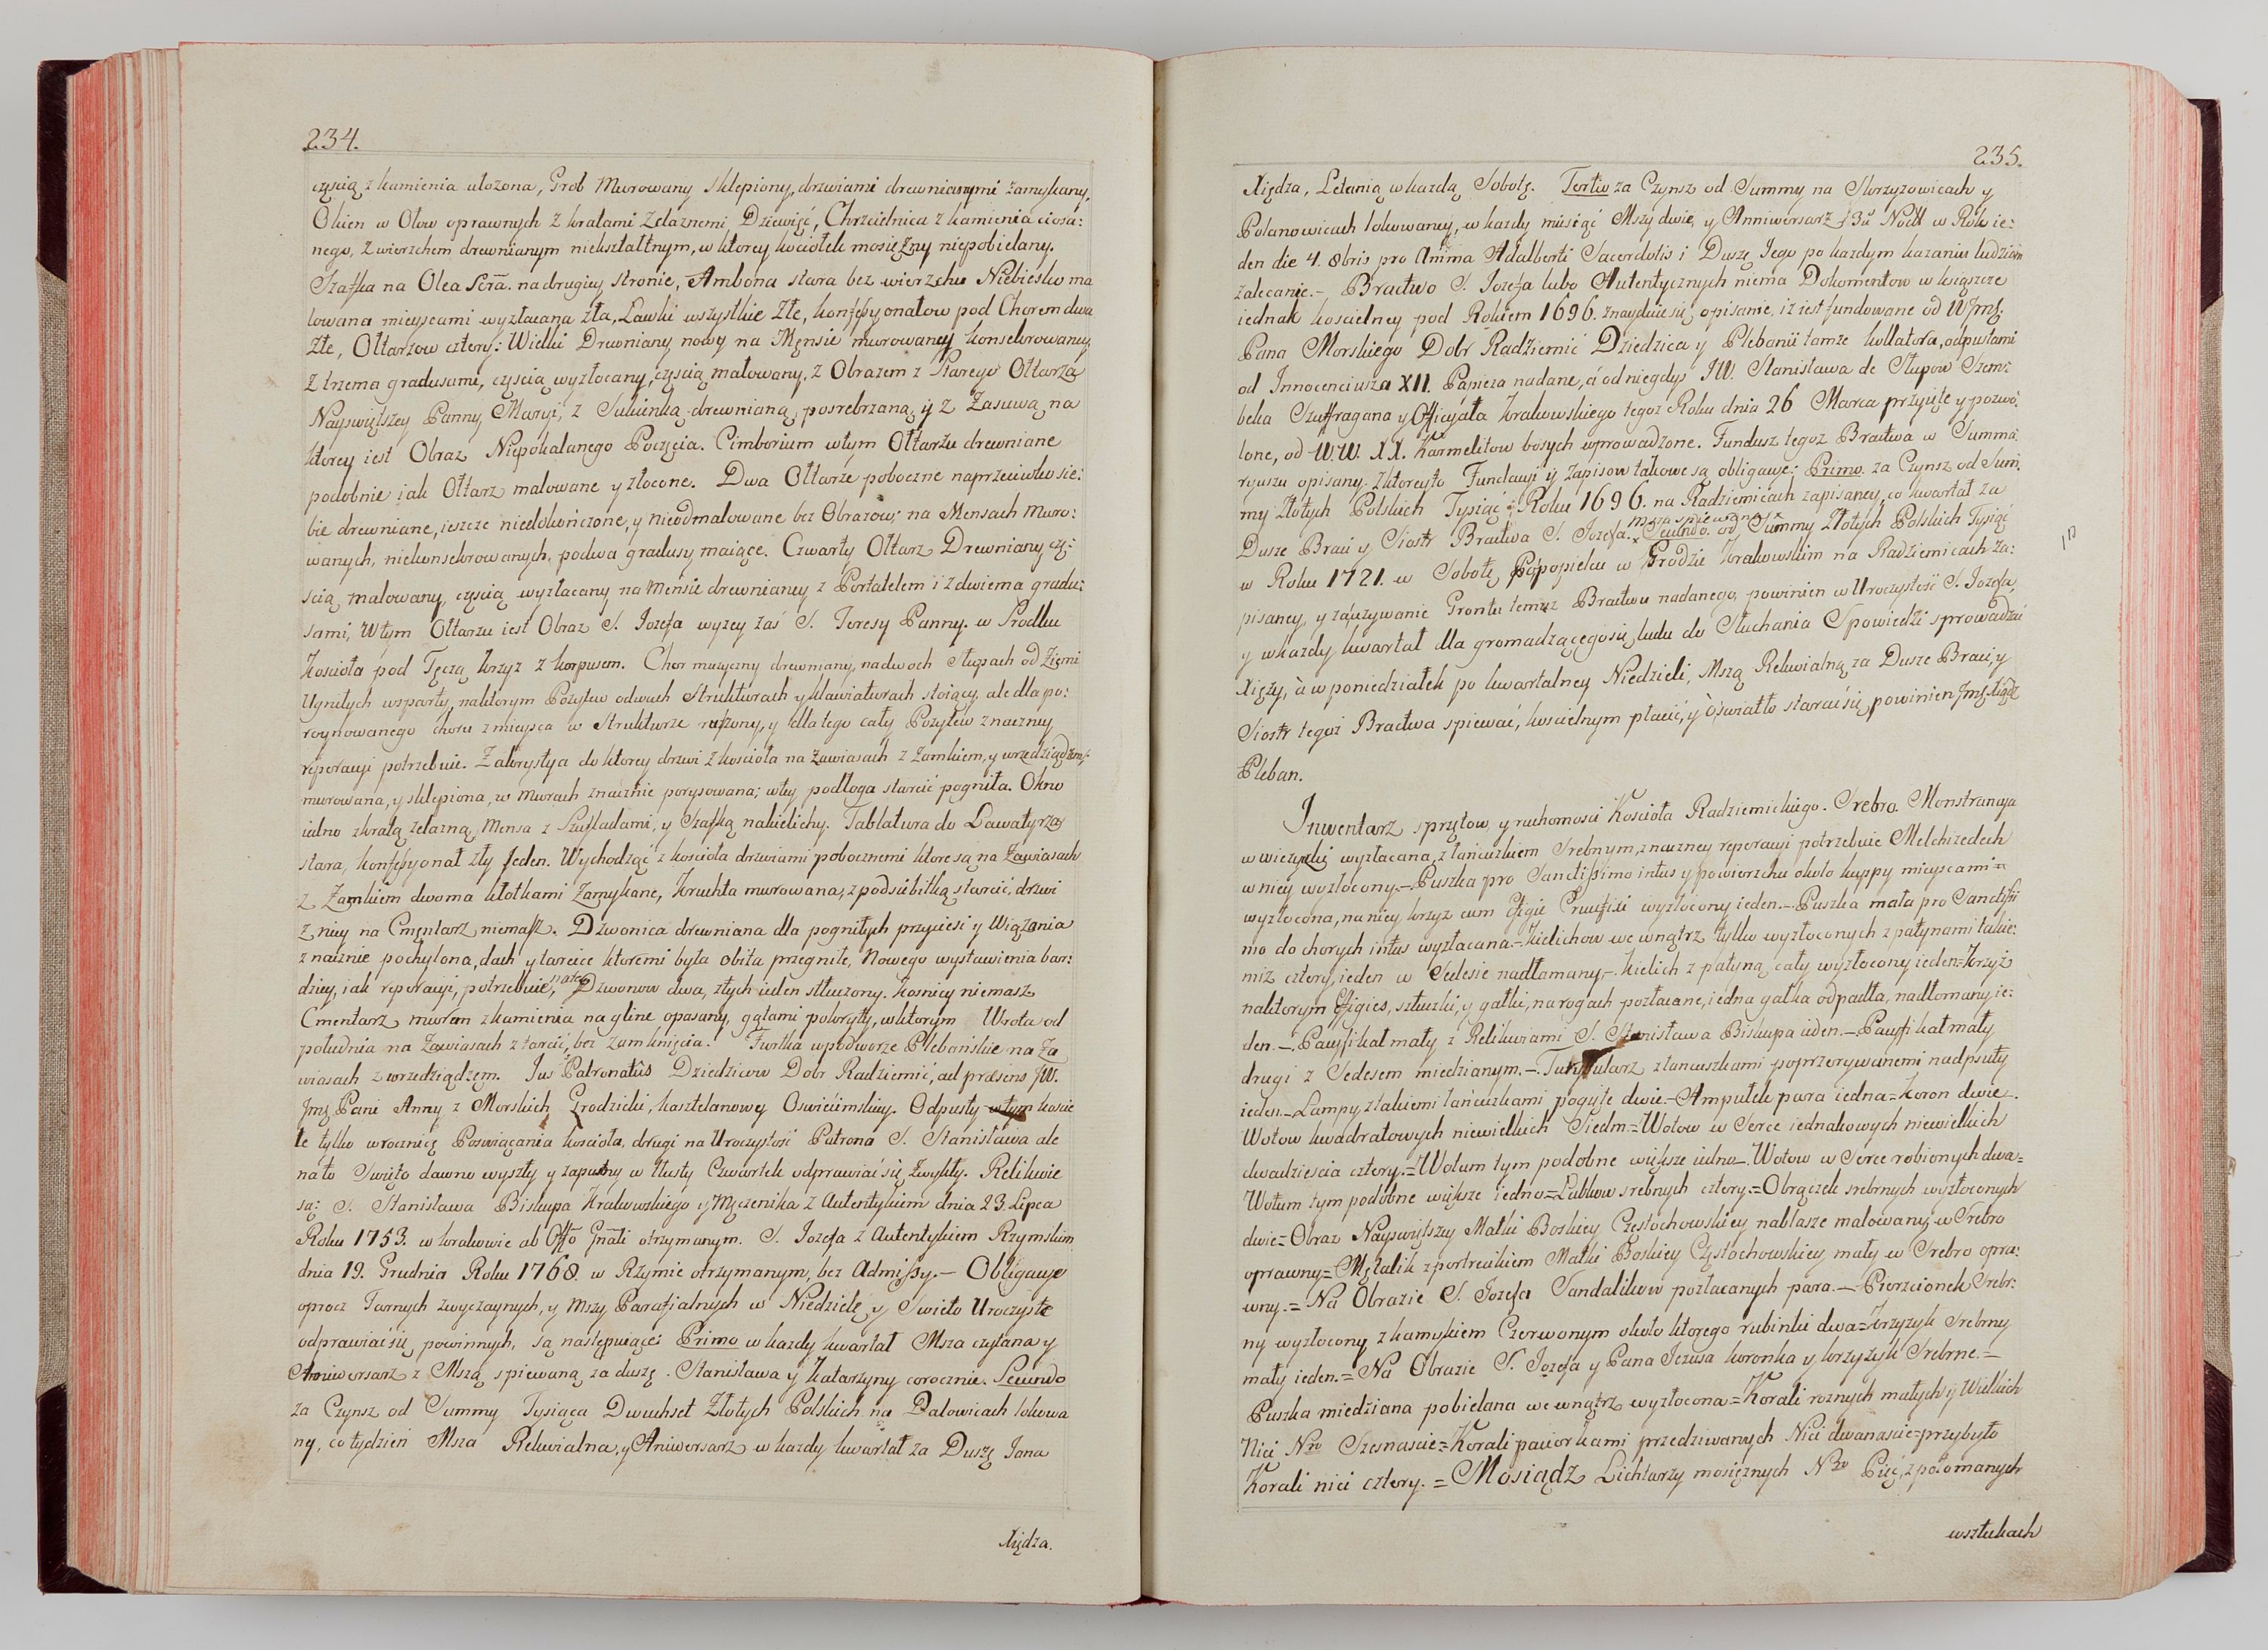 234.
częscią z kamienia ułożona, Grob Murowany sklepiony, drzwiami drewnianymi zamykany,
Okien w Ołow oprawnych z kratami żelaznemi Dziewięć, Chrzcielnica z kamienia ciosa:
nego, z wierzchem drewnianym niekształtnym, w ktorey kociołek mosiężny niepobielany.
Szafka na Olea Scra. na drugiey stronie, Ambona stara bez wierzchu Niebiesko ma
lowana mieyscami wyzłacana zła, Ławki wszystkie złe, konfessyonałow pod Chorem dwa
złe, Ołtarzow cztery: Wielki Drewniany nowy na Mensie murowaney konsekrowaney
z trzema gradusami, częscią wyzłocany, częscią malowany, z Obrazem z Starego Ołtarza
Nayswiętszey Panny Maryi, z Sukienką drewnianą posrebrzaną y z Zasuwą na
ktorey iest Obraz Niepokalanego Poczęcia. Cimborium w tym Ołtarzu drewniane
podobnie iak Ołtarz malowane y złocone. Dwa Ołtarze poboczne naprzeciwko sie:
bie drewniane, ieszcze niedokończone, y nieodmalowane bez Obrazow; na Mensach muro:
wanych, niekonsekrowanych, po dwa gradusy maiące. Czwarty Ołtarz Drewniany czę:
scią malowany, częscią wyzłacany na Mensie drewnianey z Portatelem i z dwiema gradu:
sami, w tym Ołtarzu iest Obraz S. Jozefa wyzey zaś S. Teresy Panny. w Srodku
Kościoła pod Tęczą krzyz z korpusem. Chor muzyczny drewniany, na dwoch słupach od Ziemi
Ugniłych wsparty, na ktorym Pozytyw o dwuch Strukturach y klawiaturach stoiący, ale dla po:
roynowanego choru z mieysca w Strukturze ruszony, y dla tego cały Pozytyw znaczney
reperacyi potrzebuie. Zakrystya do ktorey drzwi z kościoła na zawiasach z zamkiem, y wrzedziądzem,
murowana, y sklepiona, w murach znacznie porysowana; w tey podłoga z tarcic pogniła. Okno
iedno z kratą zelazną, Mensa z Szufladami, y Szafką na kielichy. Tablatura do Lawatyrza
stara, konfessyonał zły Jeden. Wychodząc z kościoła drzwiami pobocznemi ktore są na Zawiasach
z Zamkiem dwoma kłotkami Zamykane, Kruchta murowana, z podsiebitką z tarcic, drzwi
z niey na Cmentarz niemasz. Dzwonica drewniana dla pogniłych przyciesi y Wiązania
znacznie pochylona, dach y tarcice ktoremi była obita przegniłe, Nowego wystawienia bar:
dziey, iak reperacyi, potrzebuie, na tey Dzwonow dwa, złych ieden stłuczony. Kosnicy niemasz
Cmentarz murem z kamienia na glinę opasany, gątami pokryty, w ktorym Wrota od
południa na Zawiasach z tarcic, bez zamknięcia. Furtka w podworze Plebańskie na Za
wiasach z wrzedziądzem. Jus Patronatûs Dziedzicow Dobr Radziemic, ad præsens JW.
Jmę Pani Anny z Morskich Grodzicki, kasztelanowey Oswiecimskiey. Odpusty w tym koscie
le tylko w rocznicę Poswiącania koscioła, drugi na Uroczystość Patrona S. Stanisława ale
na to Swięto dawno wyszły y zapustny w tłusty Czwartek odprawiać się zwykły. Relikwie
są: S. Stanisława Biskupa Krakowskiego y Męczenika z Autentykiem dnia 23. Lipca
Roku 1753. w krakowie ab Offo Gnali otrzymanym. S. Jozefa z Autentykiem Rzymskim
dnia 19. Grudnia Roku 1768. w Rzymie otrzymanym, bez Admissy.— Obligacye
oprocz Farnych zwyczaynych, y Mszy Parafialnych w Niedzielę y Swięto Uroczyste
odprawiać się powinnych, są następuiące: Primo w kazdy kwartał Msza czytana y
Anniwersarz z Mszą spiewaną za duszę. Stanisława y Katarzyny corocznie. Secundo
za Czynsz od Summy Tysiąca Dwuchset Złotych Polskich na Dalowicach lokowa
ney, co tydzień Msza Rekwialna, y Aniwersarz w kazdy kwartał za Duszę Jana
Xiędza.
235.
Xiędza, Letanią w kazdą Sobotę. Tertio za Czynsz od Summy na Skrzyzowicach y
Polanowicach lokowaney, w kazdy miesiąc Mszy dwie, y Anniwersarz z 3ū Noct w Rok ie:
den die 4. 8bris pro Anima Adalberti Sacerdotis i Duszę Jego po kazdym kazaniu ludziom
zalecanie.— Bractwo S. Jozefa lubo Autentycznych niema Dokomentow w książcze
iednak koscielney pod Rokiem 1696. znayduie się opisanie, iż iest fundowane od WJmę.
Pana Morskiego Dobr Radziemic Dziedzica y Plebanii tamże kollatora, odpustami
od Innocenciusza XII. Papieza nadane, á od niegdys JW. Stanisława de Słupow Szem:
beka Szuffragana y Officyała krakowskiego tegoz Roku dnia 26 Marca przyięte y pozwo:
lone, od W.W. XX. Karmelitow bosych wprowadzone. Fundusz tegoż Bractwa w Summa:
ryuszu opisany. Z ktoreyto Fundacyi y zapisow takowe są obligacye: Primo. za Czynsz od Sum:
my Złotych Polskich Tysiąc Roku 1696. na Radziemicach zapisaney, co kwartał za
Dusze Braci y Siostr Bractwa S. Jozefa. x Msza spiewana x Secundo. od Summy Złotych Polskich Tysiąc
w Roku 1721. w Sobotę Popopielcu w Grodzie krakowskim na Radziemicach za:
pisaney, y zaużywanie Grontu temuz Bractwu nadanego, powinien w Uroczystość S. Jozefa,
y w kazdy kwartał dla gromadzącegosię ludu do Słuchania Spowiedzi sprowadzać
Xięży, à w poniedziałek po kwartalney Niedzieli, Mszą Rekwialną za Dusze Braci, y
Siostr tegoż Bractwa spiewać, koscielnym płacić, y Oswiatło starać się, powinien Jmę Xiądz
Pleban.
Inwentarz sprzętow, y ruchomosci Kościoła Radziemickiego. Srebro. Monstrancya
w wieżyczkę wyzłacana, z łańcuzkiem Srebnym, znaczney reperacyi potrzebuie Melchizedech
w niey wyzłocony.— Puszka pro Sanctissimo intus y po wierzchu około kuppy mieyscami=
wyzłocona, na niey krzyz cum Effigie Crucifixi wyzłocony ieden.— Puszka mała pro Sanctissi
mo do chorych intus wyzłacana.— Kielichow we wnątrz tylko wyzłoconych z patynami takie:
miz cztery, ieden w Sedesie nadłamany.— Kielich z patyną cały wyzłocony ieden= Krzyż
na ktorym Effigies, sztuczki, y gałki, na rogach pozłacane, iedna gałka odpadła, nadłomany ie:
den.— Pacyfikał mały z Relikwiami S. Stanisława Biskupa ieden.— Pacyfikał mały,
drugi z Sedesem miedzianym.— Turybularz z łancuszkami poprzerywanemi nadpsuty
ieden.— Lampy z takiemi łańcuzkami pogięte dwie— Ampułek para iedna= Koron dwie.
Wotow kwadratowych niewielkich Siedm.= Wotow w Serce iednakowych niewielkich
dwadziescia cztery.= Wotum tym podobne większe iedno.— Wotow w Serce robionych dwa=
Wotum tym podobne większe iedno= Łubkow srebnych cztery.= Obrączek srebrnych wyzłoconych
dwie= Obraz Nayswiętszey Matki Boskiey Częstochowskiey na blasze malowany w Srebro
oprawny= Mętalik z portrecikiem Matki Boskiey Częstochowskiey, mały w Srebro opra:
wny.= Na Obrazie S. Jozefa Sandalikow pozłacanych para.— Pierzcionek Srebr:
ny wyzłocony z kamykiem Czerwonym około ktorego rubinki dwa= Krzyzyk Srebrny
mały ieden.= Na Obrazie S. Jozefa y Pana Jezusa koronka y krzyżyk Srebrne.=
Puszka miedziana pobielana we wnątrz wyzłocona= Korali roznych małych y Wielkich
Nici Nro Szesnascie= Korali paciorkami przedziwanych Nici dwanascie= przybyło
Korali nici cztery.= Mosiądz Lichtarzy mosiężnych Nro Pięć, z połomanych
wsztukach